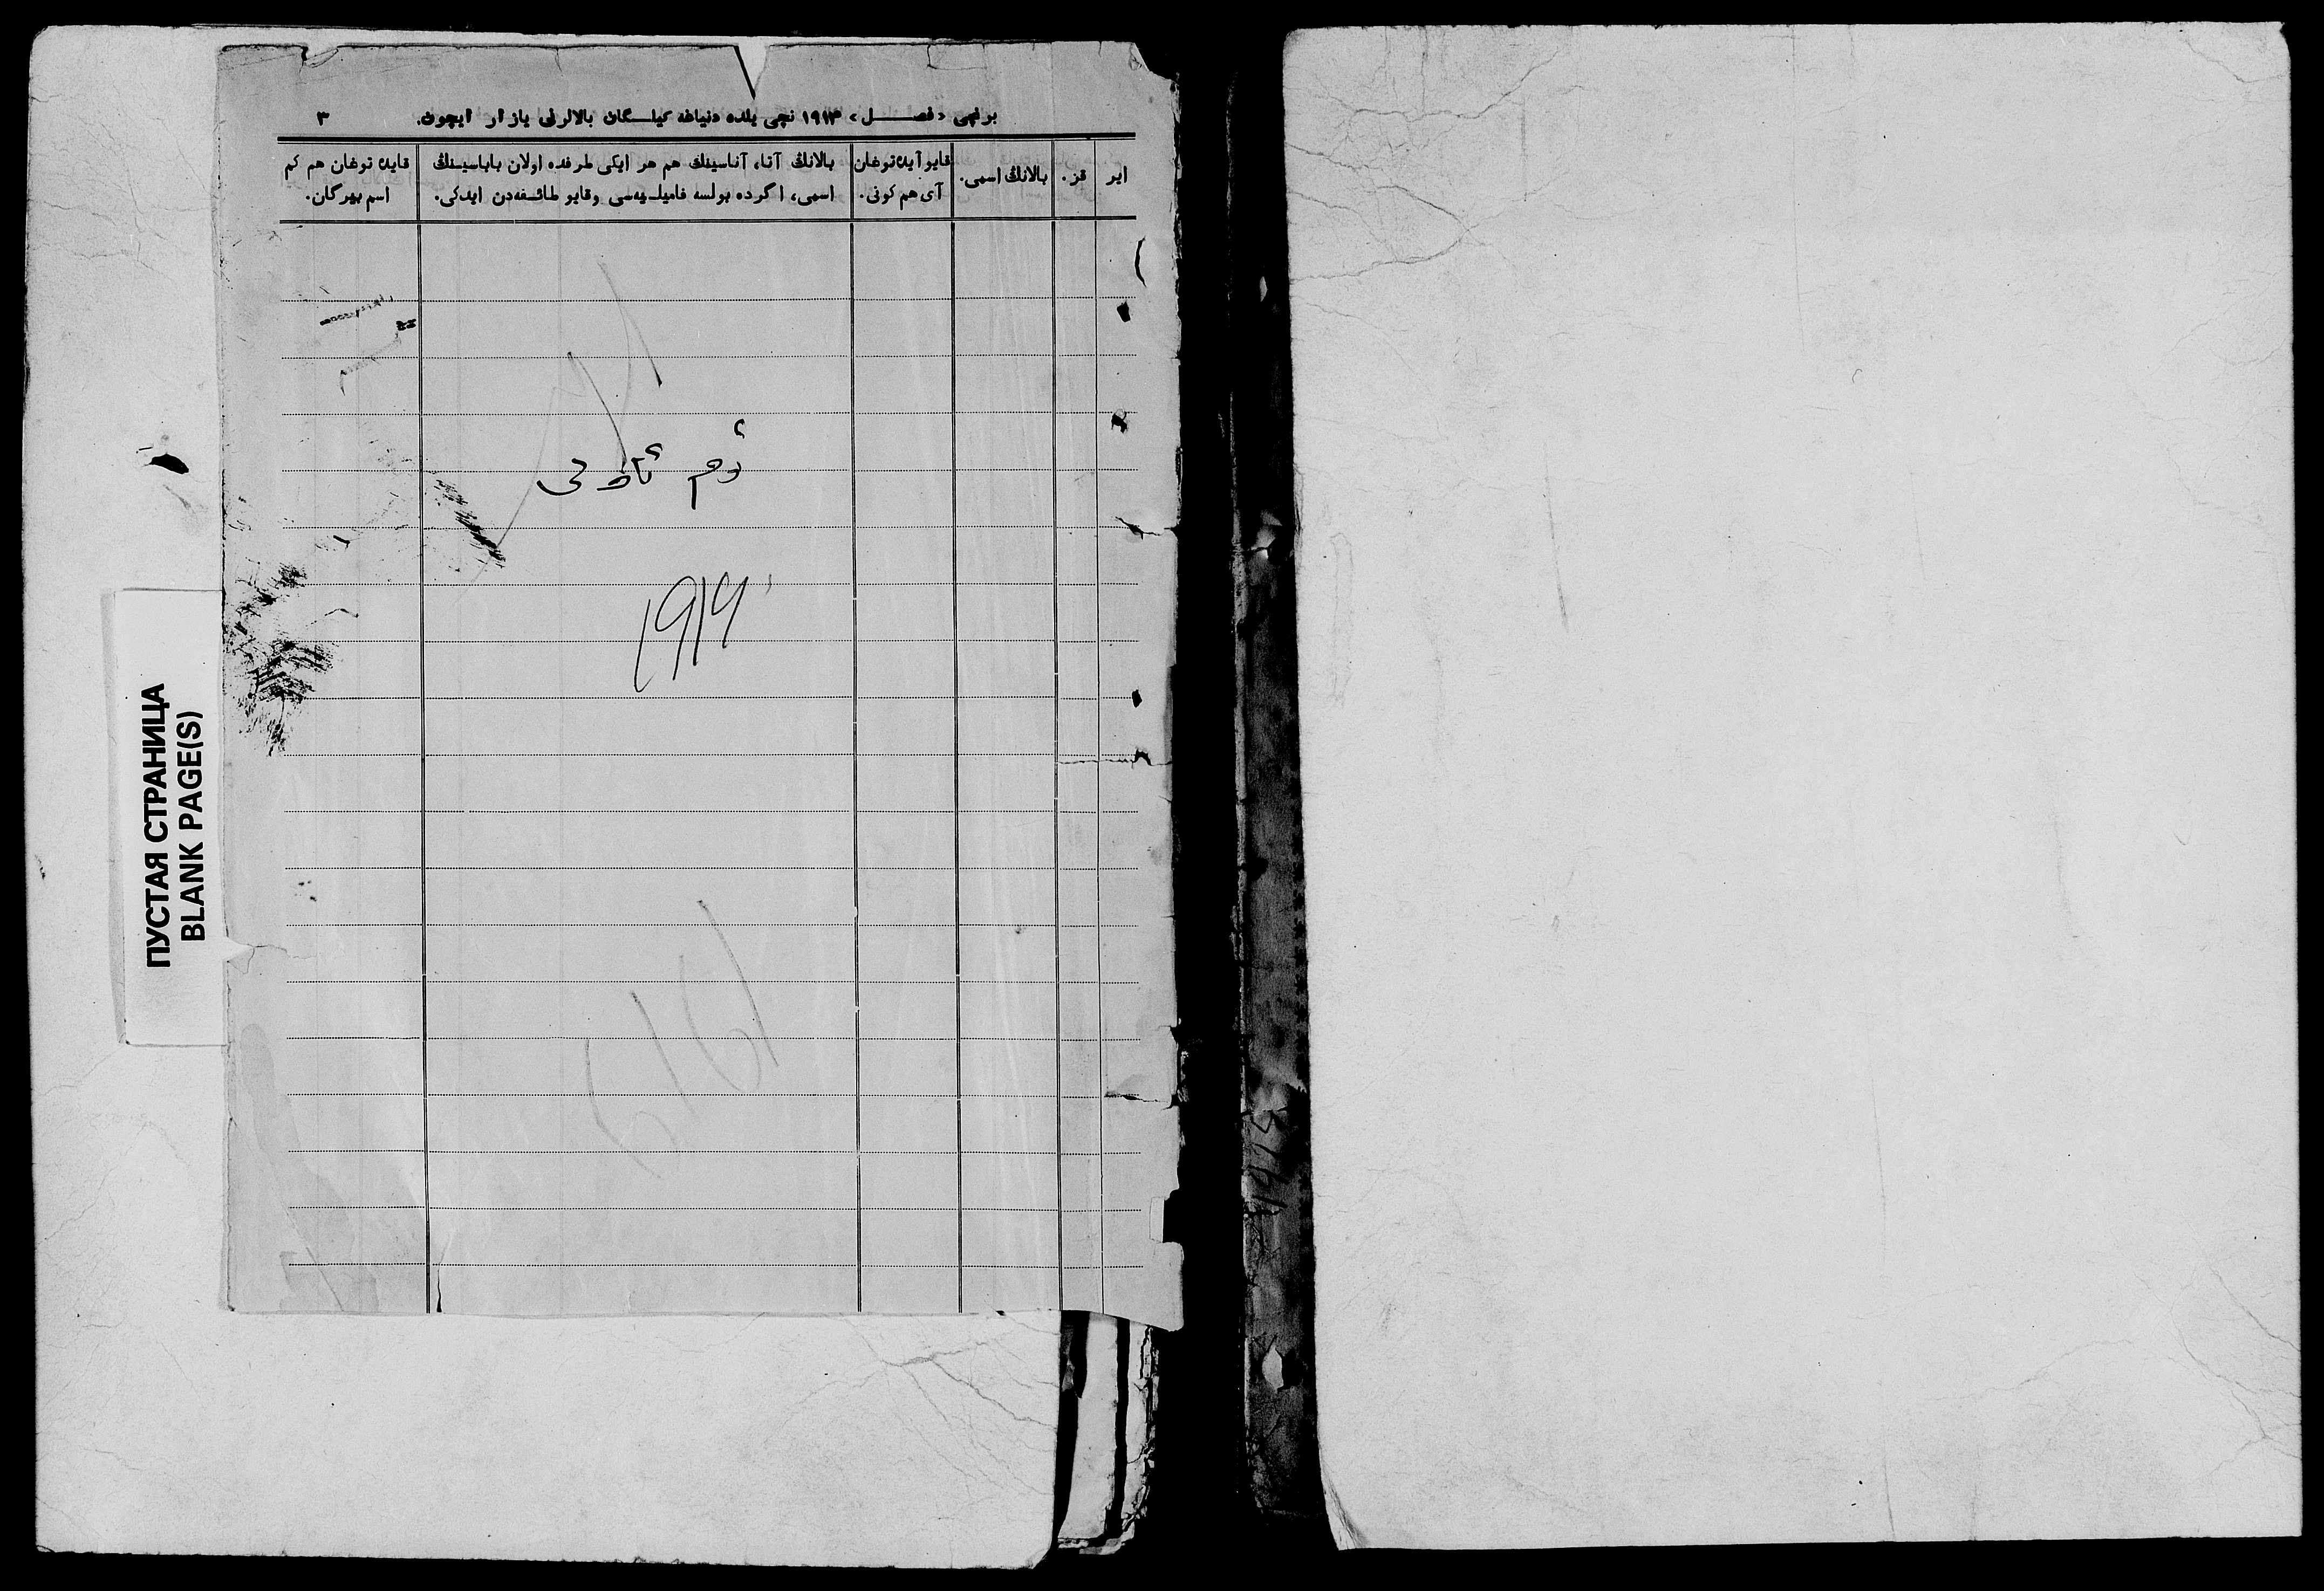 برنچی «فصل» ۱۹۱۳ نچی یلده دنیاغه کیلگان بالالرنی یازار ایچون. ۳
ایر
قز.
بالانڭ اسمی.
قایو آیده توغان
آی هم کونی.
بالانڭ آتا، آناسینڭ هم هر ایکی طرفده اولان باباسینڭ
اسمی، اگرده بولسه فامیلیه‌سی وقایو طائفه‌دن ایدکی.
قایده توغان هم کم
اسم بیرگان.
1919
ПУСТАЯ СТРАНИЦА
BLANK PAGE(S)